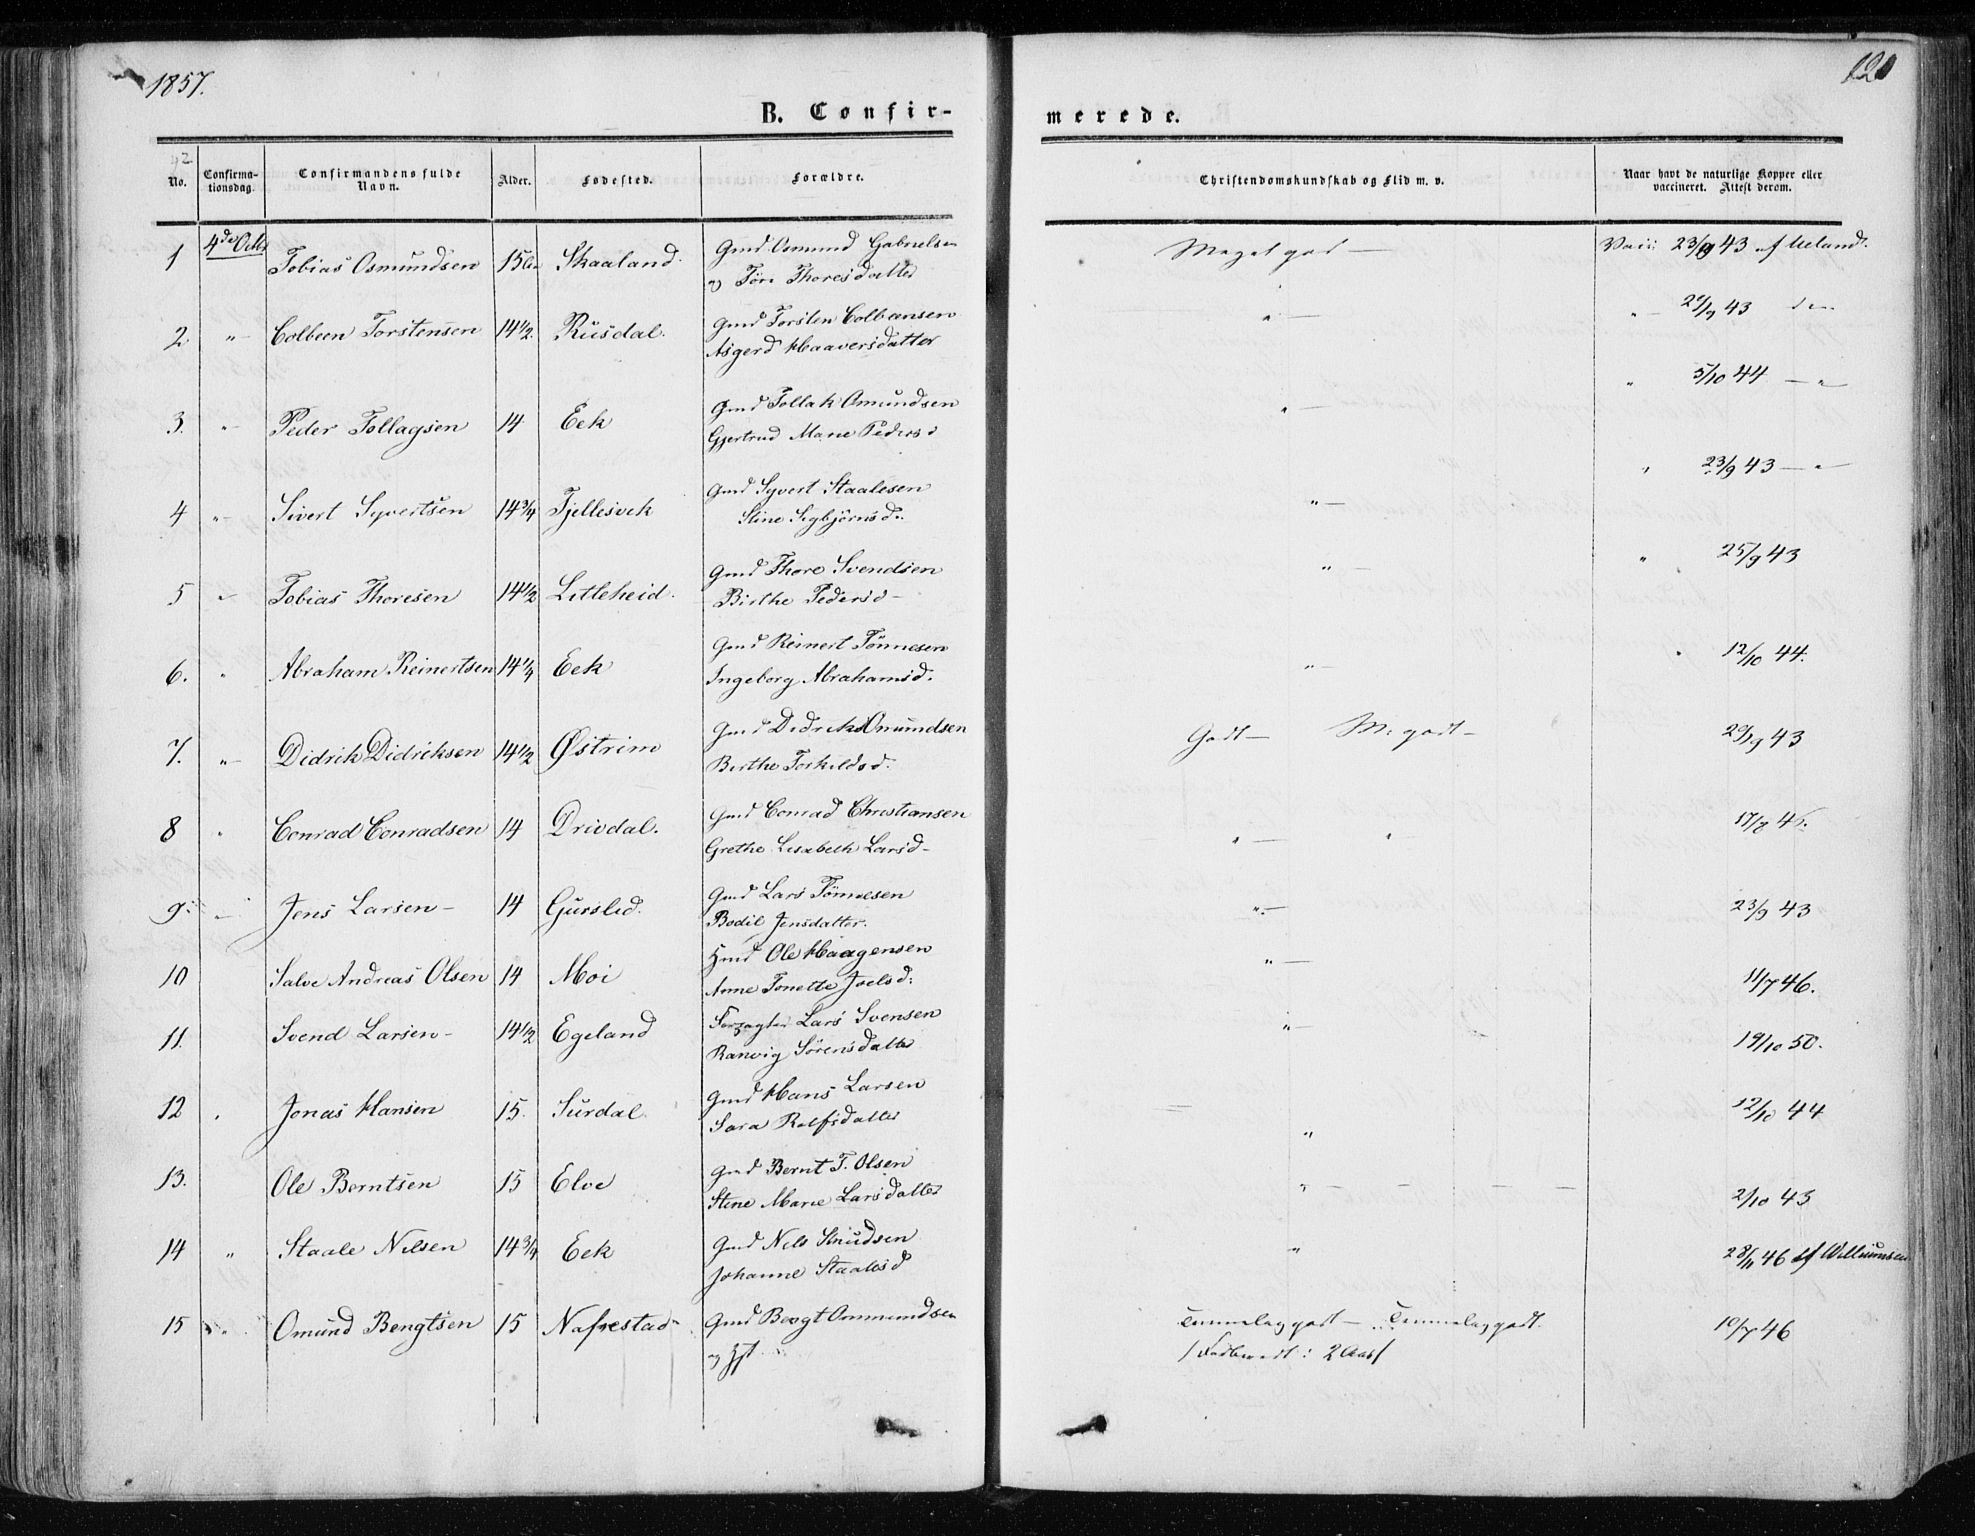 1857.
120
B. Confir-
merede.
No.
Confirma-
tionsdag.
Confirmandens fulde
Navn.
Alder.
Fødested.
Forældre.
Christendomskundskab og Flid m. v.
Naar havt de naturlige Kopper eller
vaccineret. Attest derom.
1 4de Octbr Tobias Osmundsen 15 Skaaland. Gmd Osmund Gabrielsen
og Thoresdatter
Meget god — 23/9 43 af Ueland.
2 " Colbeen Torstensen 14 1/2. Rusdal. Gmd Torsten Colbeensen
Asgerd Haaversdatter
" — " 43
3. " Peder Tollagsen 14 Eek Gmd Tollak Omundsen
Gjertrud Marie Pedersd
" — " 5/10 44 — "
4 " Sivert Syvertsen 14 3/4 Fjellesvek Gmd Syvert Staalesen
Stine Sigbjørnsd.
" — " 23/9 43 — "
5 " Tobias Thoresen 14 1/2 Litleheid. Gmd Thore Svendsen
Birthe Pedersd —
" — " 25/9 43
6. " Abraham Reinertsen 14 1/4 Eek Gmd Reinert Tønnesen
Ingeborg Abrahamsd.
" — " 12/10 44.
7. " Didrik Didriksen 14 1/2 Østrim Gmd Didrik Omundsen
Birthe Torkildsd.
Godt — M. godt — 29/9 43
8 " Conrad Conradsen 14 Drivdal. Gmd Conrad Christiansen
Grethe Lisabeth Larsd —
" — "
9. " Jens Larsen — 14 Gursled. Gmd Lars Tønnesen
Bodil Jensdatter.
" — 23/9 43
10 Salve Andreas Olsen 14 Moi Hmd Ole Haagensen
Anne Tonette Joelsd:
" — 11/7 46.
11. Svend Larsen — 14 1/2 Egeland Lars Svensen
Ranvig Sørensdatter
" — 19/10 50.
12 . Jonas Hansen 15. Surdal. Gmd Hans Larsen
Sara Rolfsdatter
" 12/10 44
13. Ole Berntsen 15 Elve Gmd Bernt T. Olsen
Stine Marie Larsdatter
" — — — — 2/10 43
14 " Staale Nilsen 14 3/4 Eek Gmd Nils Knudsen
Johanne Staalesd
" 28/11 46 af Williumsen
15 " Omund Bengtsen 15 Nafrestad Gmd Bengt Ommundsen
og
Temmelig godt — Temmelig godt. 10/7 46